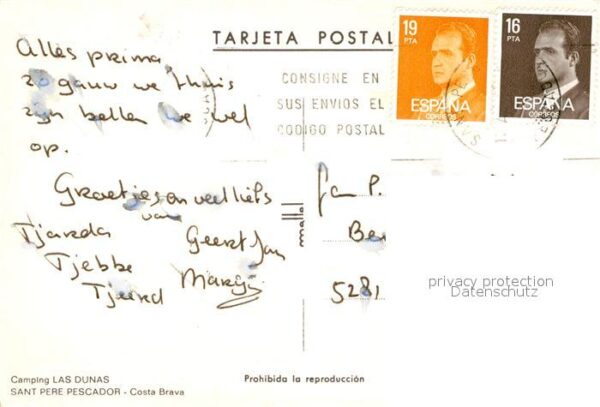 TARJETA POSTAL
19
PTA
ESPAÑA
CORREOS
16
PTA
ESPAÑA
CORREOS
CONSIGNE EN
SUS ENVIOS EL
CODIGO POSTAL
Alles prima,
zo gauw we thuis
zijn bellen we wel
op.
Groetjes en veel liefs
van
Tjareda Geert Jan
Tjebbe
Tjeerd
fam P.
Be
5281
mallol
privacy protection
Datenschutz
Camping LAS DUNAS
SANT PERE PESCADOR - Costa Brava
Prohibida la reproducción